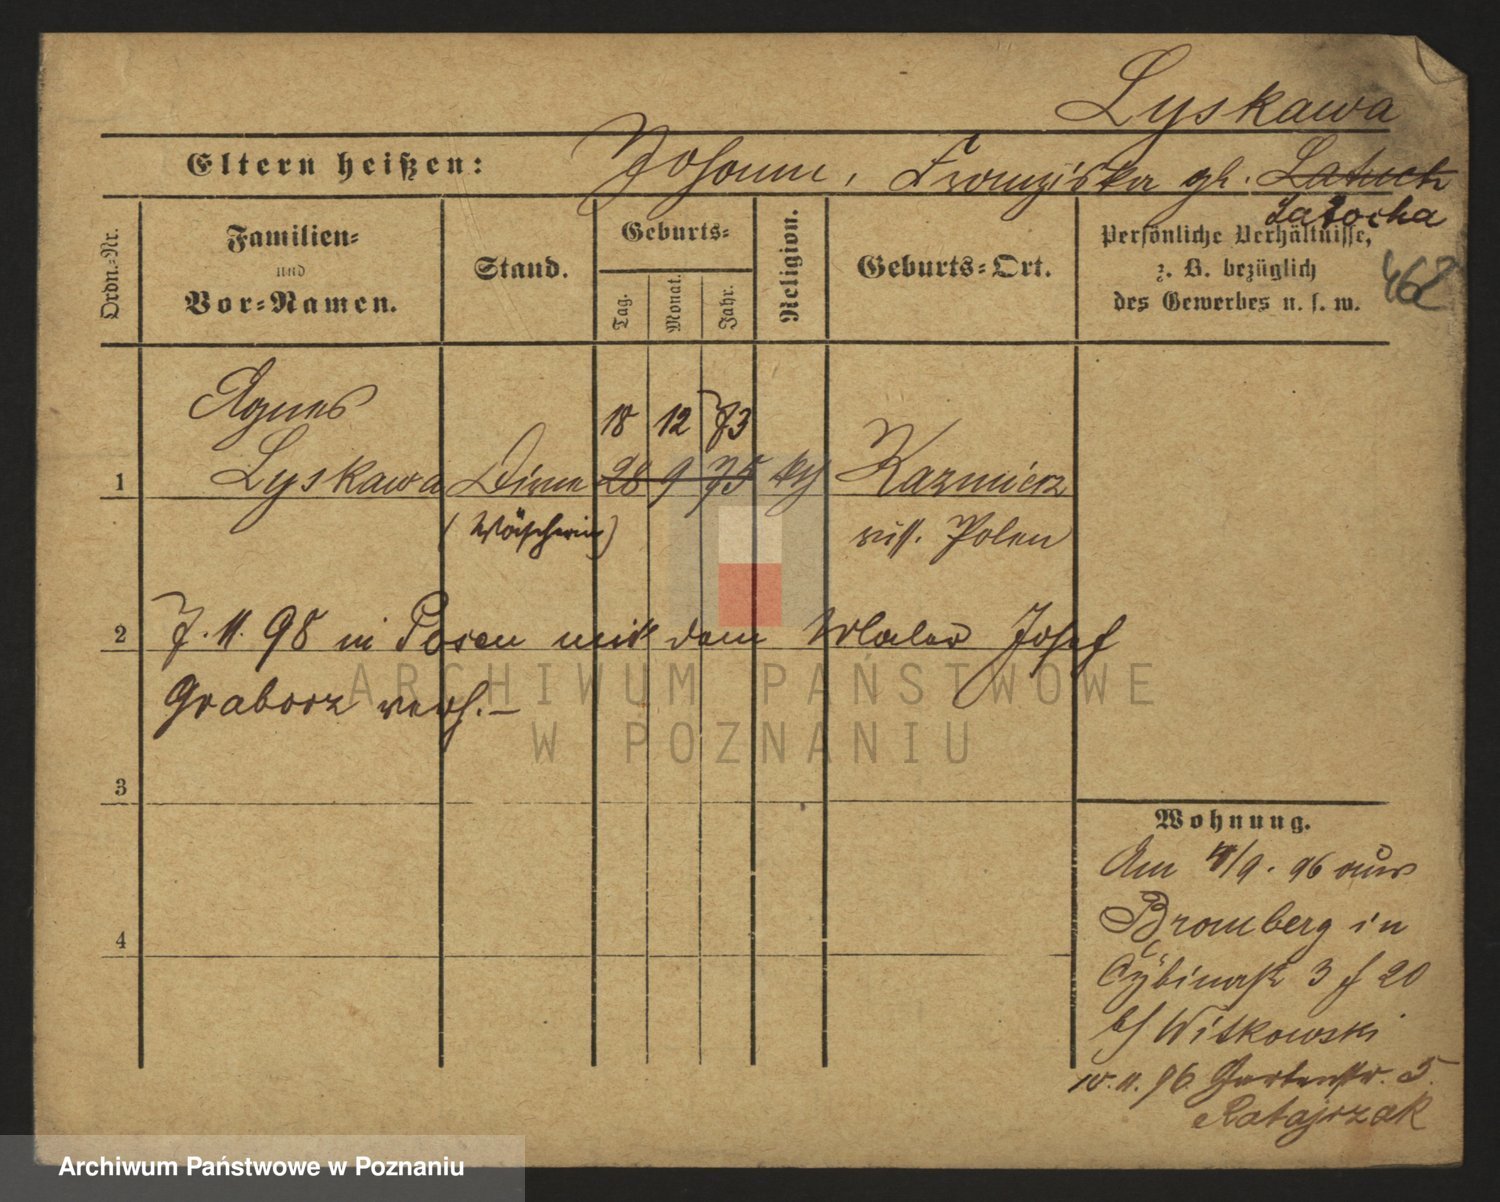 Lyskawa
Eltern heißen: Johann, Franziska gb. Latuch
Latocha
Ordn.-Nr.
Familien-
und
Vor-Namen.
Stand.
Geburts-
Tag.
Monat.
Jahr.
Religion.
Geburts-Ort.
Persönliche Verhältnisse,
z. B. bezüglich
des Gewerbes u. s. w.
468
Agnes
18 12 73
1 Lyskawa Dirne 28 9 75 kth Kazmierz
(Wäscherin) russ. Polen
2 7. 11. 98 in Posen mit dem Maler Josef
Graborz verh. –
3
4
Wohnung.
Am /9. 96 aus
Bromberg in
Cybinastr 3 f 20
bei Witkowski
10. 11. 96. Gartenstr. 5.
Ratajczak
ARCHIWUM PAŃSTWOWE
W POZNANIU
Archiwum Państwowe w Poznaniu